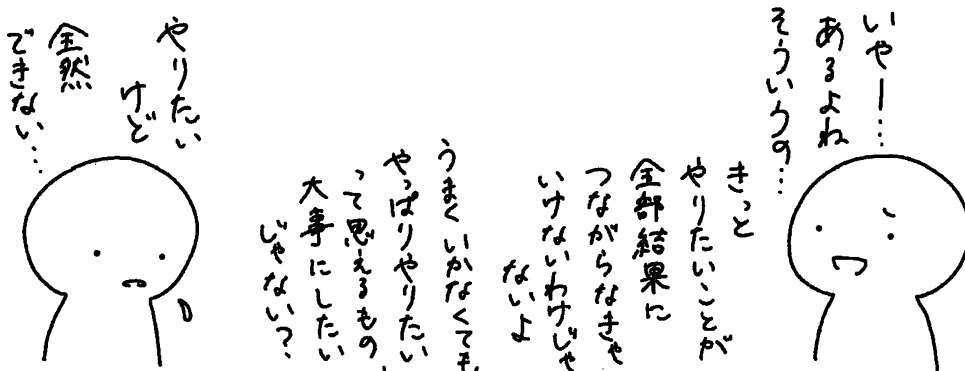 いやー…
あるよね
そういうの…
きっと
やりたいことが
全部結果に
つながらなきゃ
いけないわけじゃ
ないよ
うまくいかなくても
やっぱりやりたい
って思えるもの
大事にしたい
じゃない？
やりたい
けど
全然
できない…